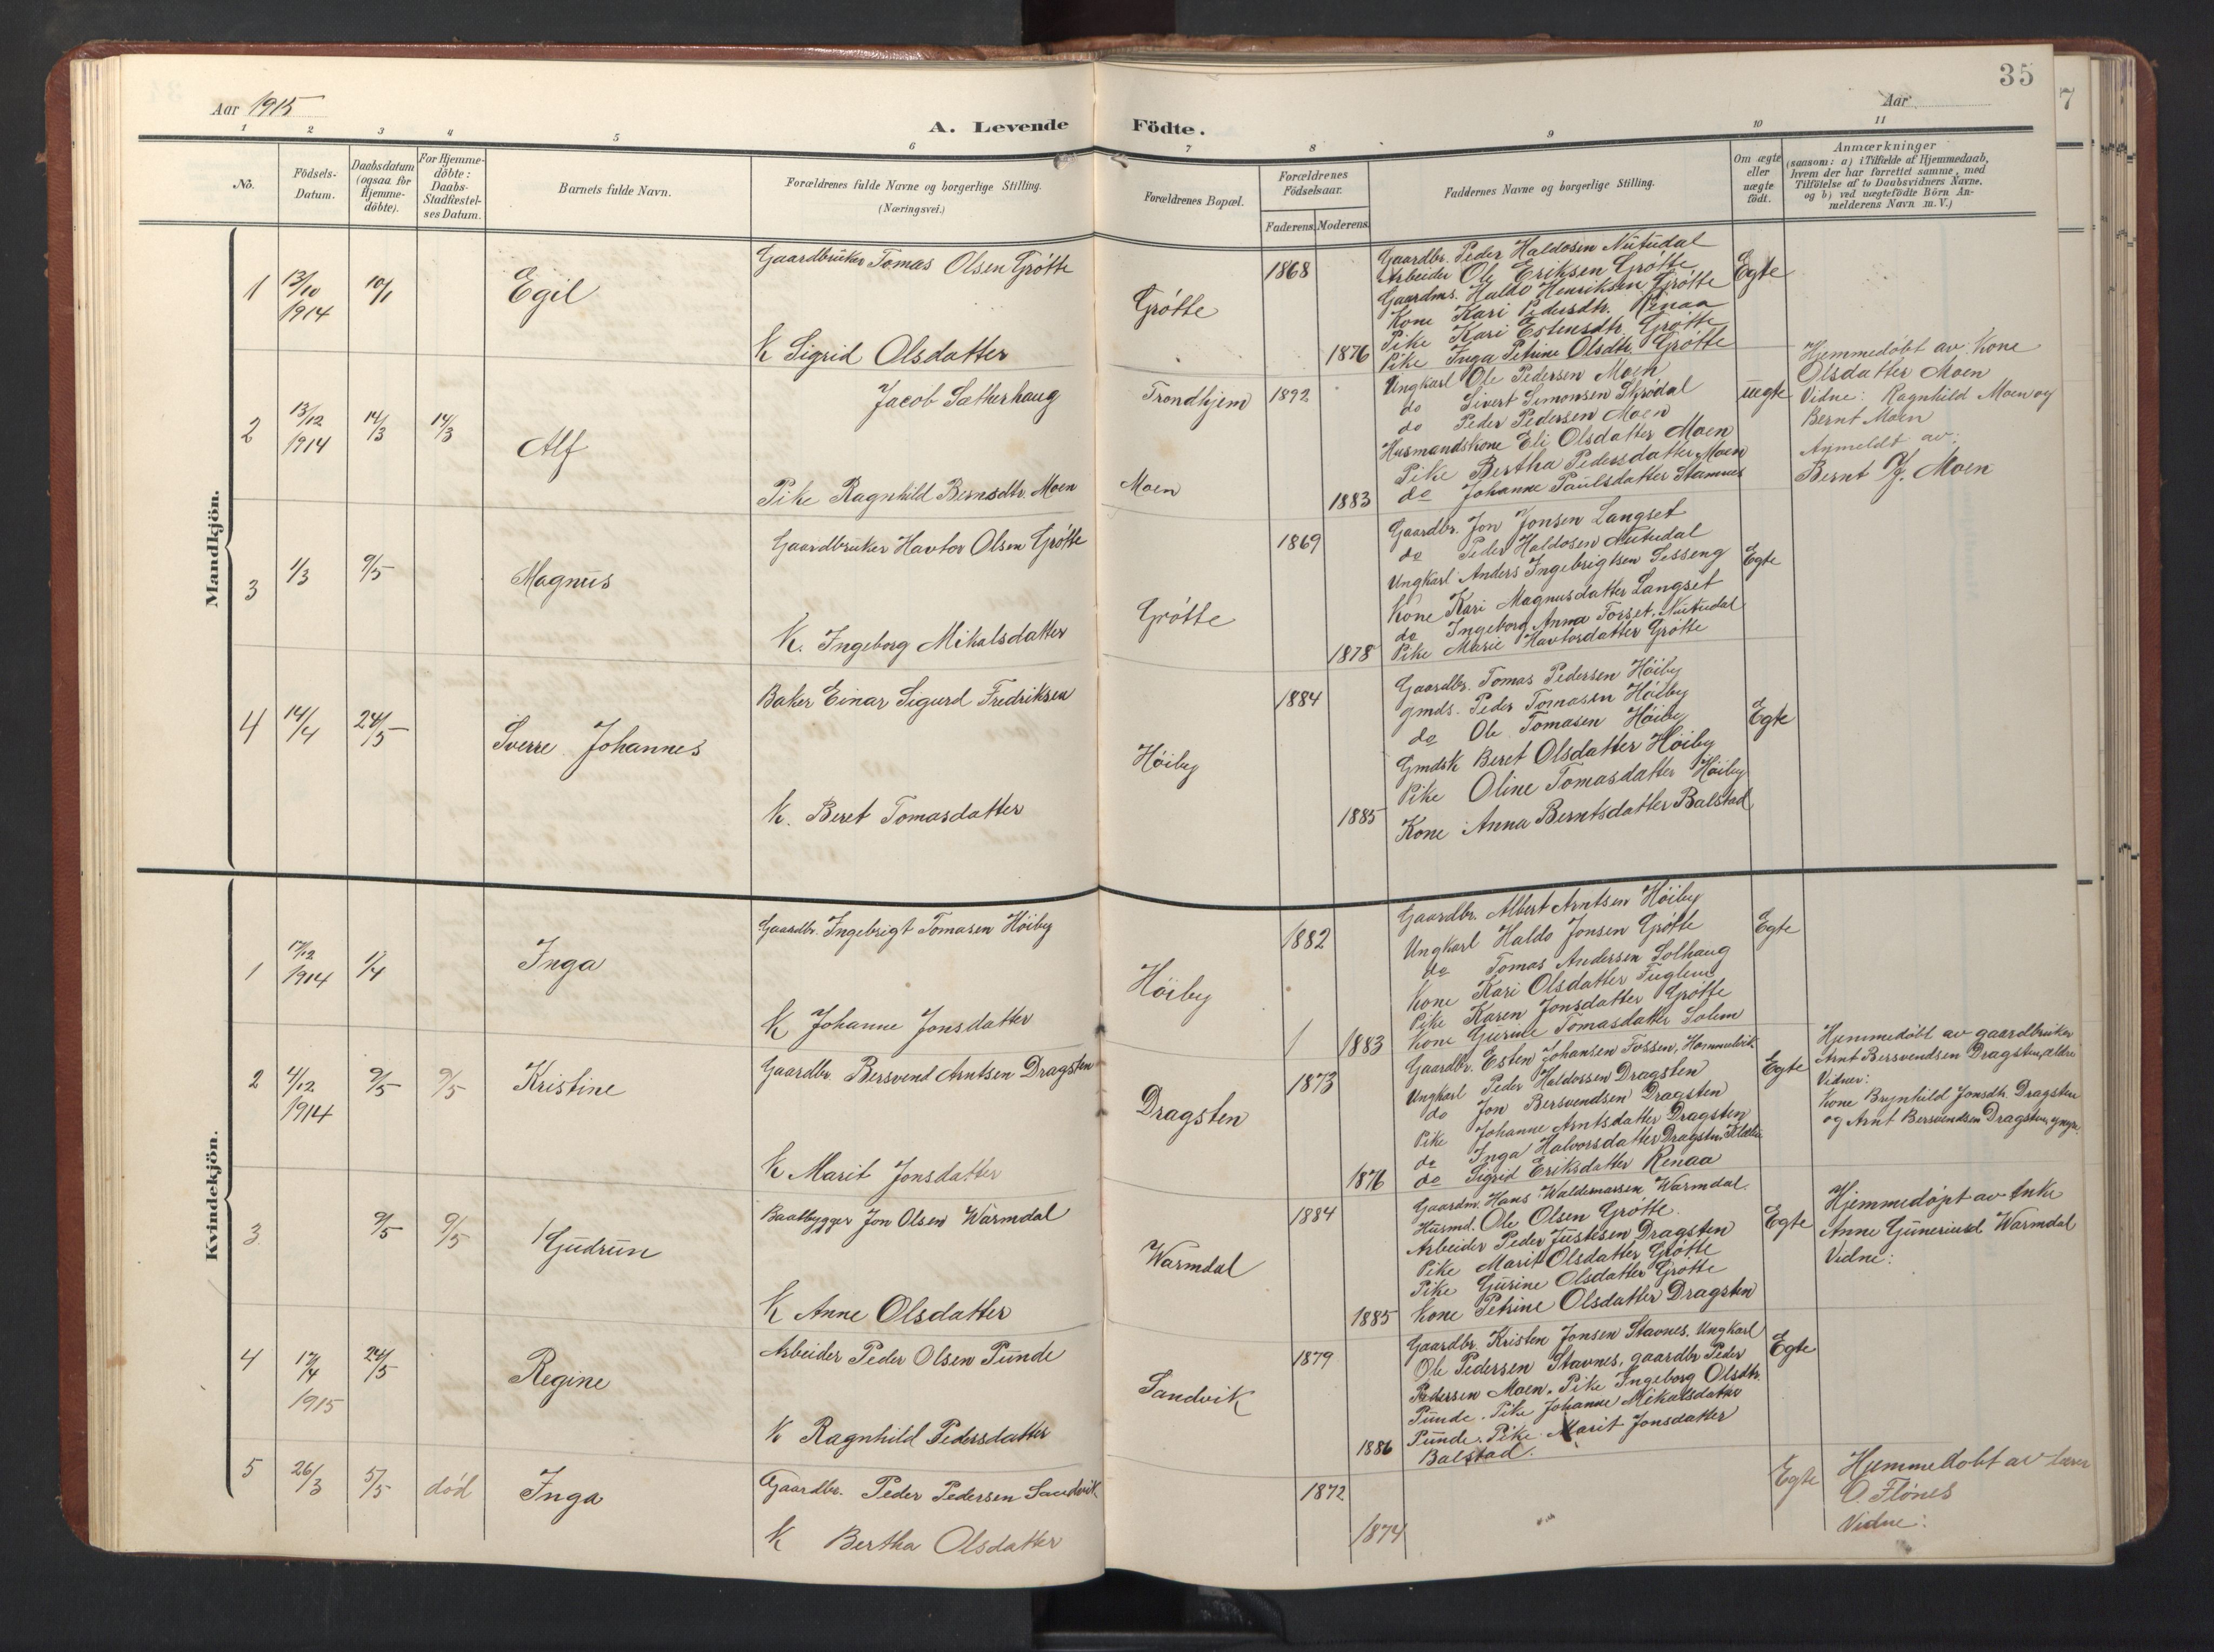 35
7
Aar 1915
Aar
A. Levende Födte.
1 2 3 4 5 6 7 8 9 10 11
No.
Födsels-Datum.
Daabsdatum (ogsaa for Hjemme-döbte).
For Hjemme-döbte: Daabs-Stadfæstel-ses Datum.
Barnets fulde Navn.
Forældrenes fulde Navne og borgerlige Stilling.
(Næringsvei.)
Forældrenes Bopæl.
Forældrenes Födselsaar.
Faderens. Moderens.
Faddernes Navne og borgerlige Stilling.
Om ægte eller uægte födt.
Anmærkninger
(saasom: a) i Tilfælde af Hjemmedaab,
hvem der har forrettet samme, med
Tilföielse af to Daabsvidners Navne,
og b) ved uægtefödte Börn An-
melderens Navn m. V.)
Mandkjön.
1 13/10 1914 10/1 Egil
Gaardbruker Tomas Olsen Grötte
K Sigrid Olsdatter
Grötte
1868
1876
Gaardbr. Peder Haldosen Nutudal
Arbeider Ole Eriksen Grötte
Gaardms. Haldo Henriksen Grötte
Kone Kari Pedersdtr. Renaa
Pike Kari Estensdtr. Grötte
Pike Inga Petrine Olsdtr. Grötte
Egte
2 13/12 1914 14/3 14/3 Alf
Jacob Sætherhaug
Pike Ragnhild Berndtr. Moen
Trondhjem
Moen
1892
1883
Ungkarl Ole Pedersen Moen
do Sivert Simonsen Skrödal
do Peder Pedersen Moen
Husmandskone Eli Olsdatter Moen
Pike Bertha Pedersdatter Moen
do Johanne Paulsdatter Stamnes
uegte
Hjemmedöbt av Kone
Olsdatter Moen
Vidne: Ragnhild Moen og
Bernt Moen
Anmeldt av:
Bernt J. Moen
3 1/3 9/5 Magnus
Gaardbruker Havtor Olsen Grötte
K. Ingeborg Mikalsdatter
Grötte
1869
1878
Gaardbr. Jon Jonsen Langset
do Peder Haldosen Nutudal
Ungkarl Anders Ingebrigtsen Sesseng
Kone Kari Magnusdatter Langset
do Ingeborg Anna Torset, Nutudal
Pike Marie Havtorsdatter Grötte
Egte
4 14/4 24/5 Sverre Johannes
Baker Einar Sigurd Fredriksen
K. Beret Tomasdatter
Höiby
1884
1885
Gaardbr. Tomas Pedersen Höiby
Gmds. Peder Tomasen Höiby
do Ole Tomasen Höiby
Gmdsk Beret Olsdatter Höiby
Pike Oline Tomasdatter Höiby
Kone Anna Berntsdatter Balstad
Egte
Kvindekjön.
1 17/12 1914 1/4 Inga
Gaardbr. Ingebrigt Tomasen Höiby
K Johanne Jonsdatter
Höiby
1882
1883
Gaardbr. Albert Arntsen Höiby
Ungkarl Haldo Jonsen Grötte
do Tomas Andersen Solhaug
Kone Kari Olsdatter Fuglem
Pike Karen Jonsdatter Grötte
Kone Gurine Tomasdatter Solem
Egte
2 4/12 1914 9/5 9/5 Kristine
Gaardbr. Bersvend Arntsen Dragsten
K Marit Jonsdatter
Dragsten
1873
1876
Gaardbr. Esten Johansen Fossen, Hommelvik
Ungkarl Peder Haldossen Dragsten
do Jon Bersvendsen Dragsten
Pike Johanne Arntsdatter Dragsten
do Inga Halvorsdatter Dragsten, Klæbu
do Sigrid Eriksdatter Renaa
Egte
Hjemmedöbt av gaardbruker
Arnt Bersvendsen Dragsten, ældre
Vidner:
Kone Brynhild Jonsdtr. Dragsten
og Arnt Bersvendsen Dragsten, yngre.
3 9/5 9/5 Gudrun
Baatbygger Jon Olsen Warmdal
K Anne Olsdatter
Warmdal
1884
1885
Gaardm. Hans Waldemarsen Warmdal.
Husmd. Ole Olsen Grötte.
Arbeider Peder Justesen Dragsten
Pike Marit Olsdatter Grötte
Pike Gurine Olsdatter Grötte
Kone Petrine Olsdatter Dragsten
Egte
Hjemmedöpt av Enke
Anne Guneriusd Warmdal
Vidne:
4 17/4 1915 24/5 Regine
Arbeider Peder Olsen Punde
K Ragnhild Pedersdatter
Sandvik
1879
1886
Gaardbr. Kristen Jonsen Stavnes, Ungkarl
Ole Pedersen Stavnes, gaardbr Peder
Pedersen Moen. Pike Ingeborg Olsdtr.
Punde. Pike Johanne Mikalsdatter
Punde. Pike Marit Jonsdatter
Balstad.
Egte
5 26/3 5/5 död Inga
Gaardbr. Peder Pedersen Sandvik
K Bertha Olsdatter
1872
1874
Egte
Hjemmedöbt av lærer
O. Flönes
Vidne: